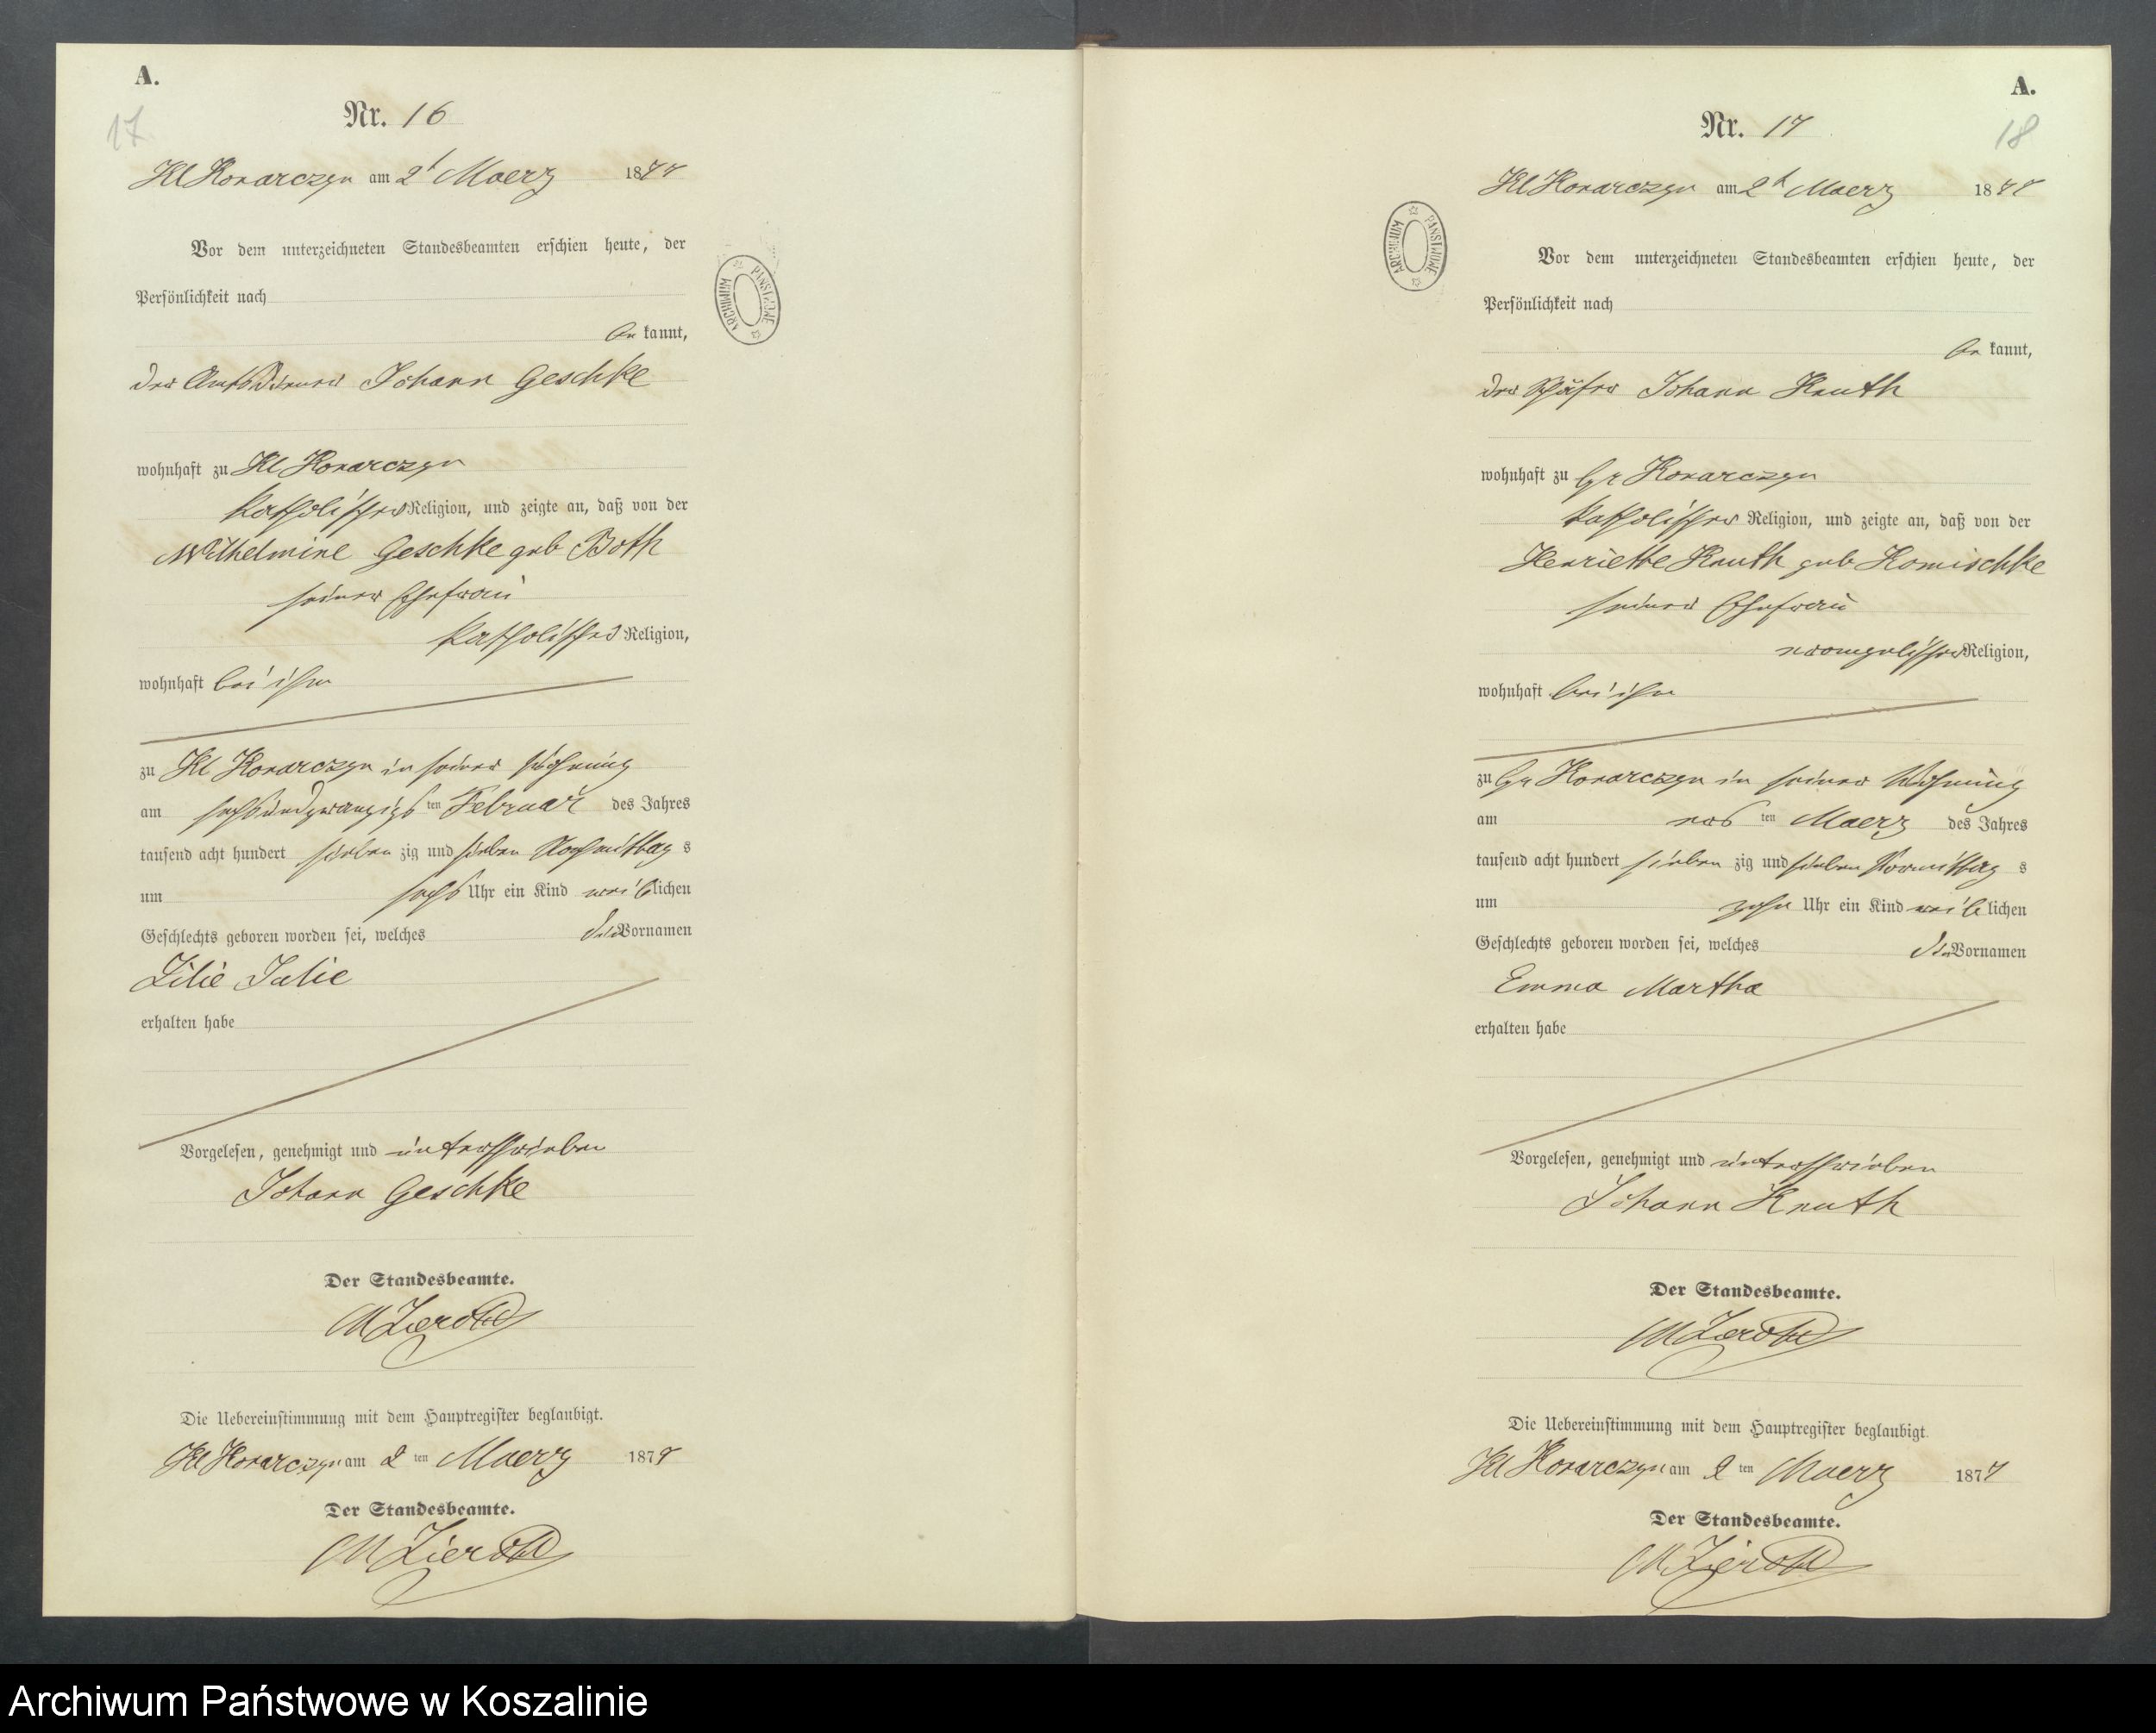 A.
17
Nr. 16
Kl Konarczyn am 2t Maerz 1877
Vor dem unterzeichneten Standesbeamten erschien heute, der
Persönlichkeit nach
be kannt,
der Amtsdiener Johann Geschke
wohnhaft zu Kl Konarczyn
katholischer Religion, und zeigte an, daß von der
Wilhelmine Geschke geb Both
seiner Ehefrau
katholischer Religion,
wohnhaft bei ihm
zu Kl Konarczyn in seiner Wohnung
am sechsundzwanzigs ten Februar des Jahres
tausend acht hundert sieben zig und sieben Nachmittag s
um sechs Uhr ein Kind weib lichen
Geschlechts geboren worden sei, welches die Vornamen
Lilie Julie
erhalten habe
Vorgelesen, genehmigt und unterschrieben
Johann Geschke
Der Standesbeamte.
Die Uebereinstimmung mit dem Hauptregister beglaubigt.
Kl Konarczyn am 2 ten Maerz 1877
Der Standesbeamte.
ARCHIWUM PAŃSTWOWE
A.
18
Nr. 17
Kl Konarczyn am 2t Maerz 1877
Vor dem unterzeichneten Standesbeamten erschien heute, der
Persönlichkeit nach
be kannt,
der Schäfer Johann Knuth
wohnhaft zu Gr Konarczyn
katholischer Religion, und zeigte an, daß von der
Henriette Knuth geb Komischke
seiner Ehefrau
evangelischer Religion,
wohnhaft bei ihm
zu Gr Konarczyn in seiner Wohnung
am ers ten Maerz des Jahres
tausend acht hundert sieben zig und sieben Vormittag s
um zehn Uhr ein Kind weib lichen
Geschlechts geboren worden sei, welches die Vornamen
Emma Martha
erhalten habe
Vorgelesen, genehmigt und unterschrieben
Johann Knuth
Der Standesbeamte.
Die Uebereinstimmung mit dem Hauptregister beglaubigt.
Kl Konarczyn am 2 ten Maerz 1877
Der Standesbeamte.
ARCHIWUM PAŃSTWOWE
Archiwum Państwowe w Koszalinie